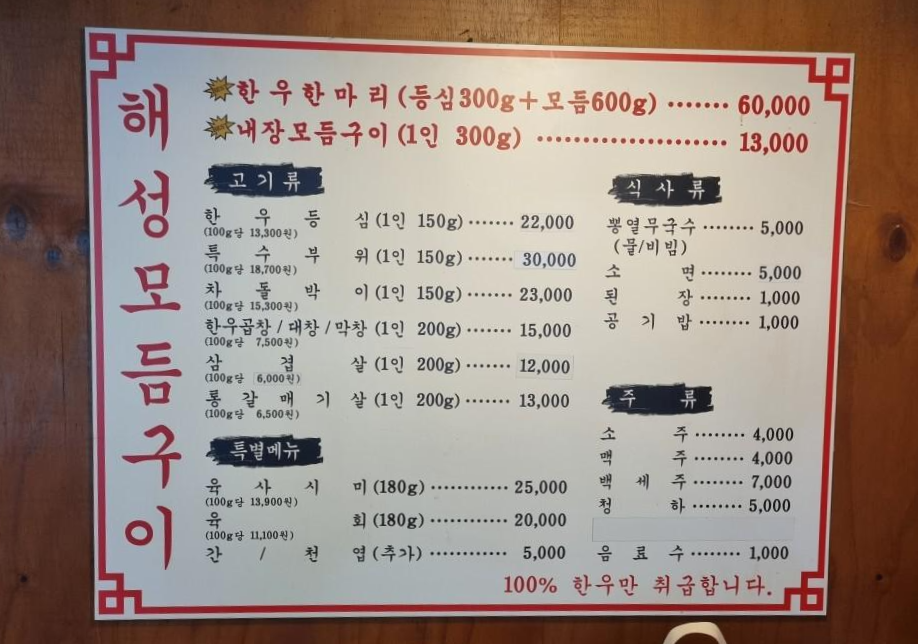 해성모듬구이
한우한마리 (등심300g+모듬600g) ······· 60,000
내장모듬구이 (1인 300g) ····················· 13,000
고기류
한우등심 (1인 150g) ······· 22,000
(100g당 13,300원)
특수부위 (1인 150g) ······· 30,000
(100g당 18,700원)
차돌박이 (1인 150g) ······· 23,000
(100g당 15,300원)
한우곱창/대창/막창 (1인 200g) ······· 15,000
(100g당 7,500원)
삼겹살 (1인 200g) ······· 12,000
(100g당 6,000원)
통갈매기살 (1인 200g) ······· 13,000
(100g당 6,500원)
특별메뉴
육사시미 (180g) ············ 25,000
(100g당 13,900원)
육회 (180g) ············ 20,000
(100g당 11,100원)
간/천엽 (추가) ············ 5,000
식사류
뽕열무국수 ········ 5,000
(물/비빔)
소면 ········ 5,000
된장 ········ 1,000
공기밥 ········ 1,000
주류
소주 ········ 4,000
맥주 ········ 4,000
백세주 ········ 7,000
청하 ········ 5,000
음료수 ········ 1,000
100% 한우만 취급합니다.